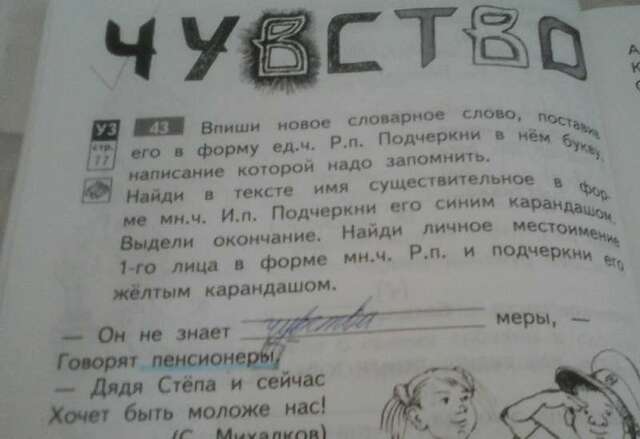 ЧУВСТВО
УЗ 43 Впиши новое словарное слово, поставив
стр. 77 его в форму ед.ч. Р.п. Подчеркни в нём букву,
написание которой надо запомнить.
Найди в тексте имя существительное в фор-
ме мн.ч. И.п. Подчеркни его синим карандашом.
Выдели окончание. Найди личное местоимение
1-го лица в форме мн.ч. Р.п. и подчеркни его
жёлтым карандашом.
— Он не знает чувства меры, —
Говорят пенсионеры,
— Дядя Стёпа и сейчас
Хочет быть моложе нас!
(С. Михалков)